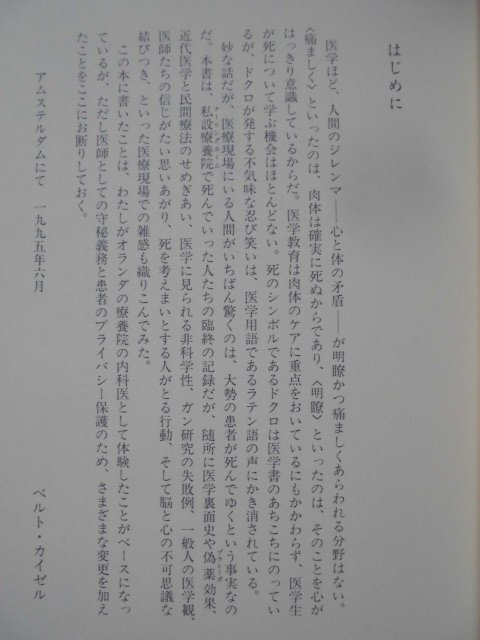 はじめに
医学ほど、人間のジレンマ――心と体の矛盾――が明瞭かつ痛ましくあらわれる分野はない。
〈痛ましく〉といったのは、肉体は確実に死ぬからであり、〈明瞭〉といったのは、そのことを心が
はっきり意識しているからだ。医学教育は肉体のケアに重点をおいているにもかかわらず、医学生
が死について学ぶ機会はほとんどない。死のシンボルであるドクロは医学書のあちこちにのってい
るが、ドクロが発する不気味な忍び笑いは、医学用語であるラテン語の声にかき消されている。
妙な話だが、医療現場にいる人間がいちばん驚くのは、大勢の患者が死んでゆくという事実なの
だ。本書は、私設療養院で死んでいった人たちの臨終の記録だが、随所に医学裏面史や偽薬効果、
近代医学と民間療法のせめぎあい、医学に見られる非科学性、ガン研究の失敗例、一般人の医学観、
医師たちの信じがたい思いあがり、死を考えまいとする人がとる行動、そして脳と心の不可思議な
結びつき、といった医療現場での雑感も織りこんでみた。
この本に書いたことは、わたしがオランダの療養院の内科医として体験したことがベースになっ
ているが、ただし医師としての守秘義務と患者のプライバシー保護のため、さまざまな変更を加え
たことをここにお断りしておく。
アムステルダムにて　一九九五年六月
ベルト・カイゼル